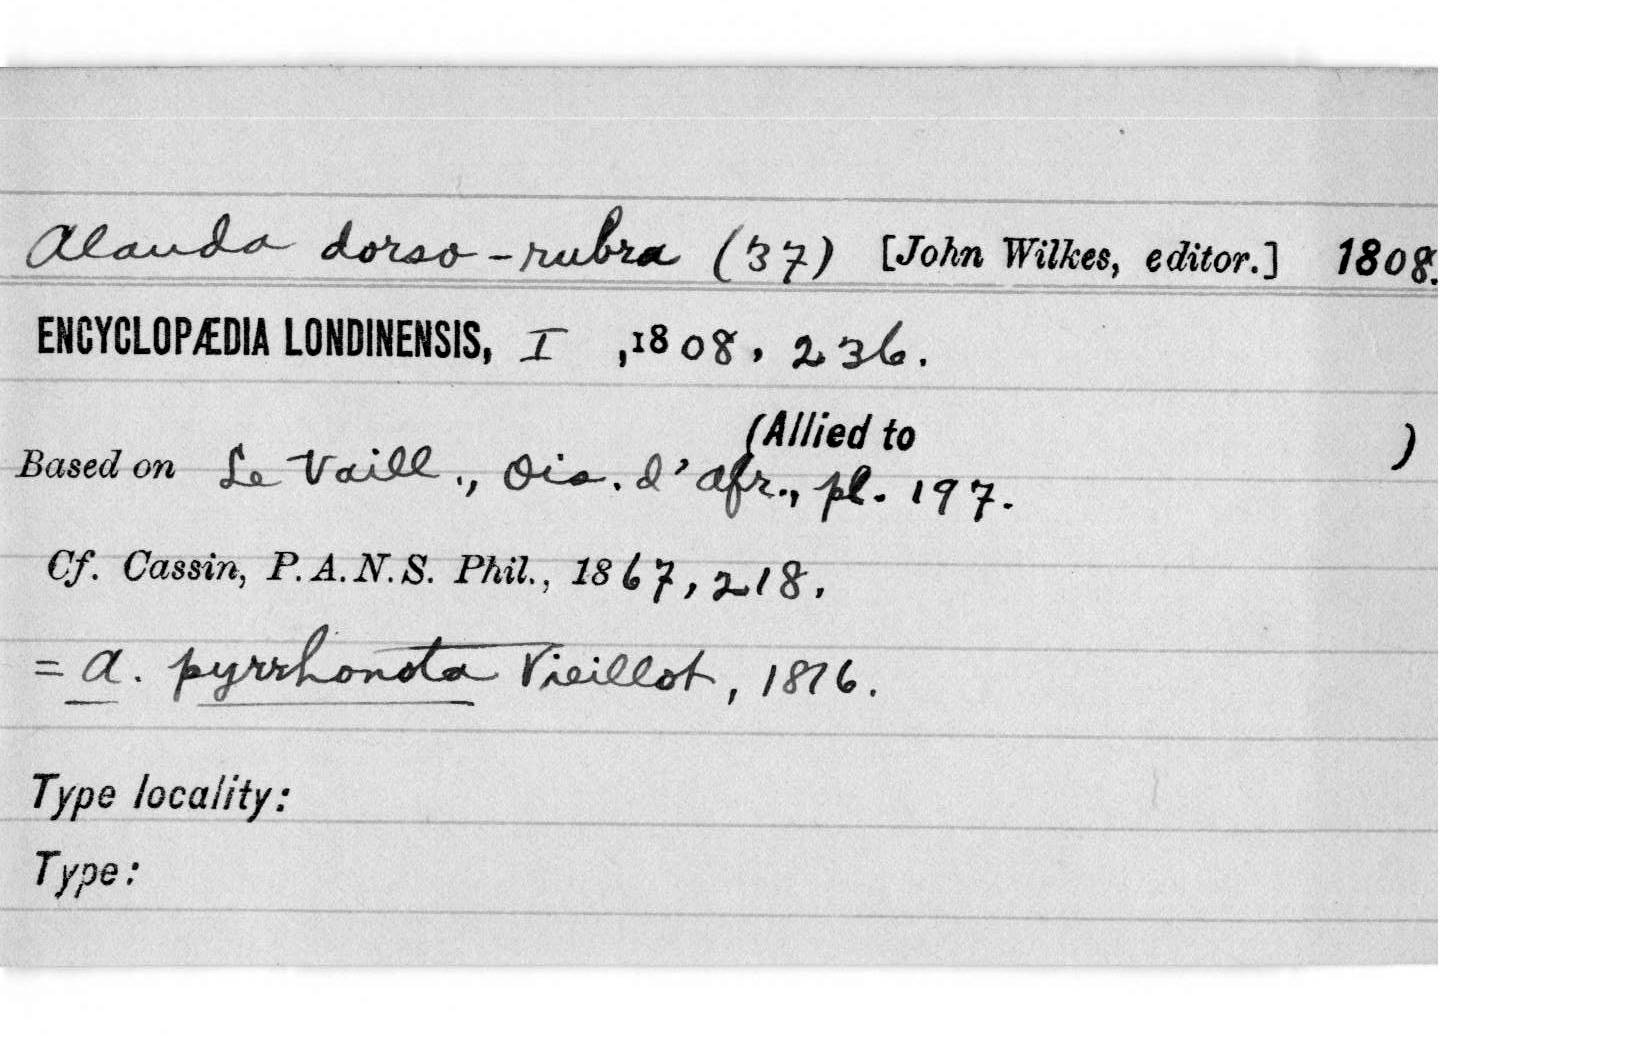 Alauda dorso-rubra (37) [John Wilkes, editor.] 1808.
ENCYCLOPÆDIA LONDINENSIS, I ,1808, 236.
(Allied to )
Based on Le Vaill., Ois. d'Afr., pl. 197.
Cf. Cassin, P.A.N.S. Phil., 1867, 218.
= A. pyrrhonota Vieillot, 1816.
Type locality:
Type: